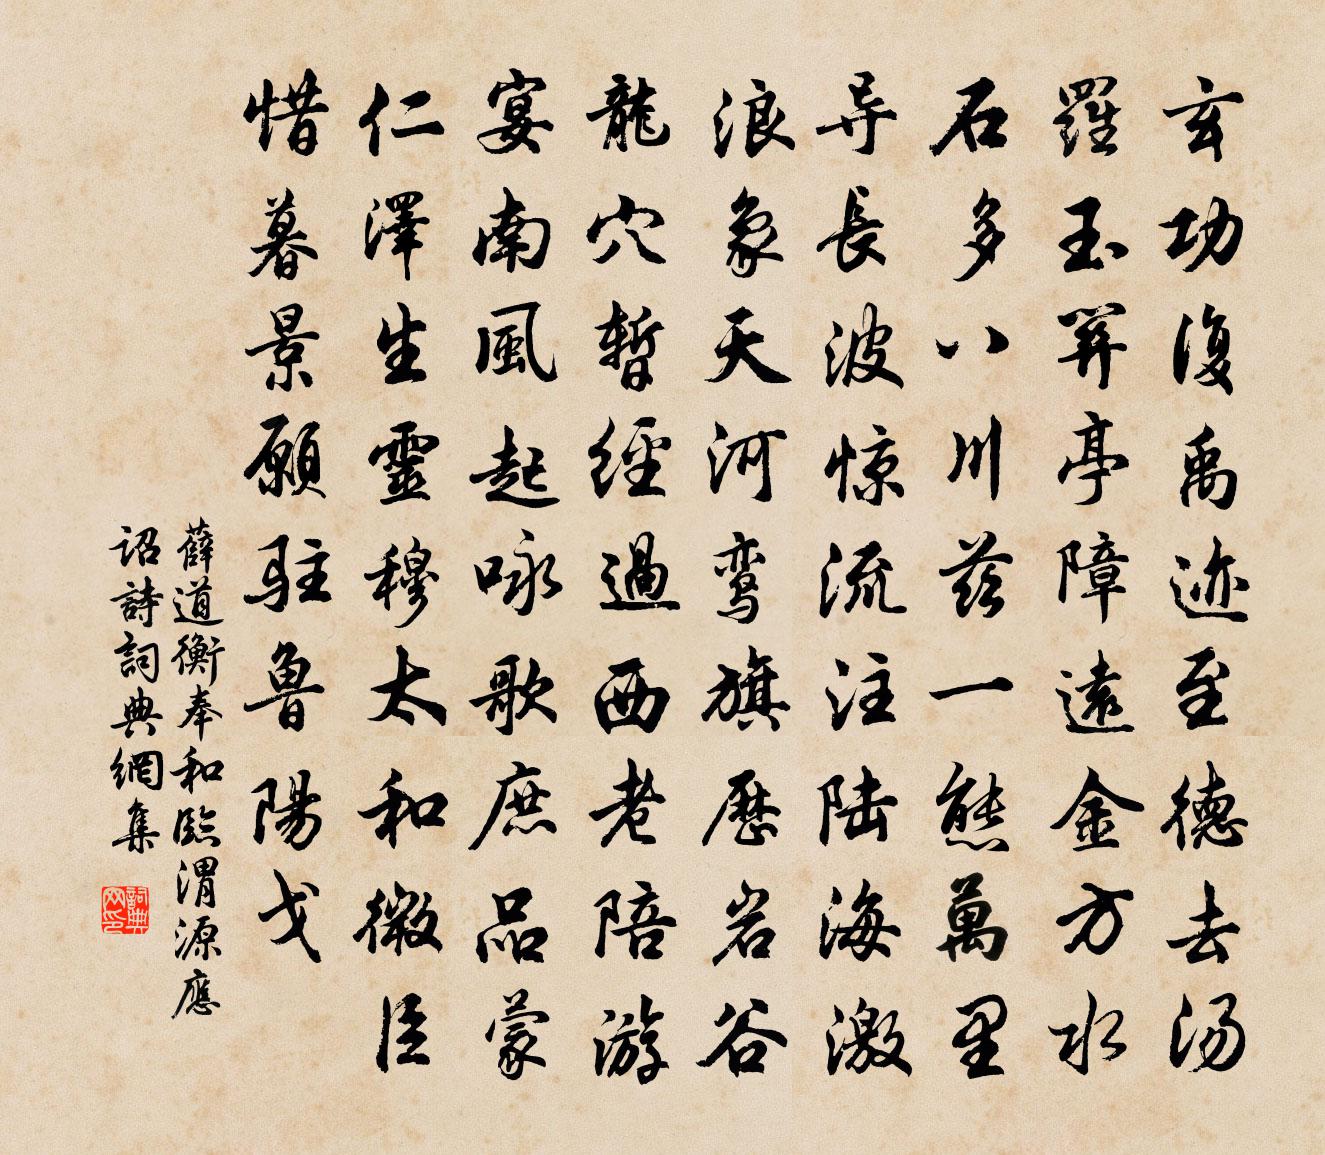 玄功復禹迹至德去湯
羅玉關亭障遠金方水
石多八川兹一態萬里
导長波惊流注陆海激
浪象天河鸾旗歷岩谷
龍穴暫經過西老陪游
宴南風起咏歌庶品蒙
仁澤生靈穆太和微臣
惜暮景願駐魯陽戈
薛道衡奉和臨渭源應
詔詩詞典網集
詞典网印